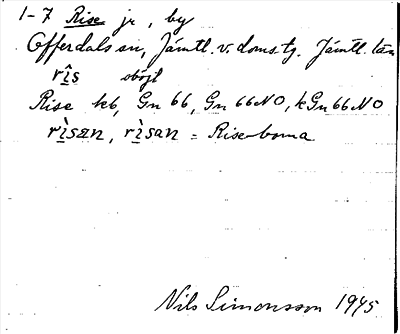 1-7 Rise jr, by
Offerdals sn, Jämtl. v. doms. tg. Jämtl. län
rîs obójt
Rise kb, Gn 66, Gn 66 NO, kGn 66 NO
rìsæn, rìsan = Riseborna
Nils Simonsson 1945